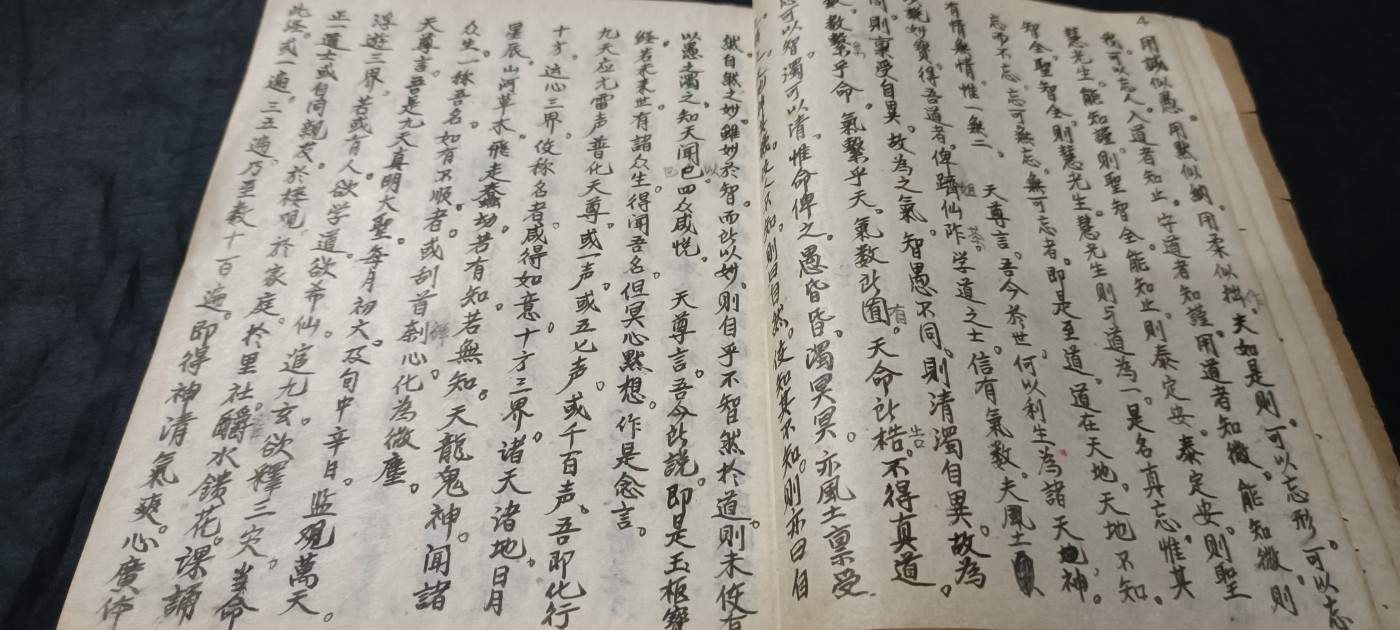 用誠似愚。用默似訥。用柔似拙。夫如是則。可以忘形。可以忘
我。可以忘人。入道者知止。守道者知謹。用道者知微。能知微。則
慧光生。能知謹。則聖智全。能知止。則泰定安。泰定安。則聖
智全。聖智全。則慧光生。慧光生。則与道為一。是名真忘。惟其
忘而不忘。忘可無忘。無可忘者。即是至道。道在天地。天地不知。
有情無情。惟一無二。 天尊言。吾今於世。何以利生。為諸天地神。
妙寶。得吾道者。俾躋仙阼。学道之士。信有氣数。夫風土
同則稟受自異。故為之氣。智愚不同。則清濁自異。故為
数。数繫乎命。氣繫乎天。氣数所囿。天命所梏。不得真道。
可以智。濁可以清。惟命俾之。愚昏昏。濁冥冥。亦風土稟受
不知。則曰自然。使知其不知。則亦曰自
然。自然之妙。雖妙於智。而所以妙。則自乎不智。然於道。則未使有
以愚之濁之。知天聞已。四众咸悦。 天尊言。吾今所說。即是玉枢寶
經。若未來世。有諸众生。得聞吾名。但冥心默想。作是念言。
九天应元雷声普化天尊。或一声。或五七声。或千百声。吾即化行
十方。运心三界。使称名者。咸得如意。十方三界。诸天诸地。日月
星辰。山河草木。飛走蠢动。若有知。若無知。天龍鬼神。闻諸
众生。一称吾名。如有不順者。或刮首刳心。化為微塵。
天尊言。吾是九天真明大聖。每月初六。及旬中辛日。监观萬天。
浮遊三界。若或有人。欲学道。欲希仙。逭九玄。欲釋三灾。當命
正一道士。或自同親友。於楼观。於家庭。於里社。醑水鐼花。課誦
此经。或一遍。三五遍。乃至数十百遍。即得神清氣爽。心廣体